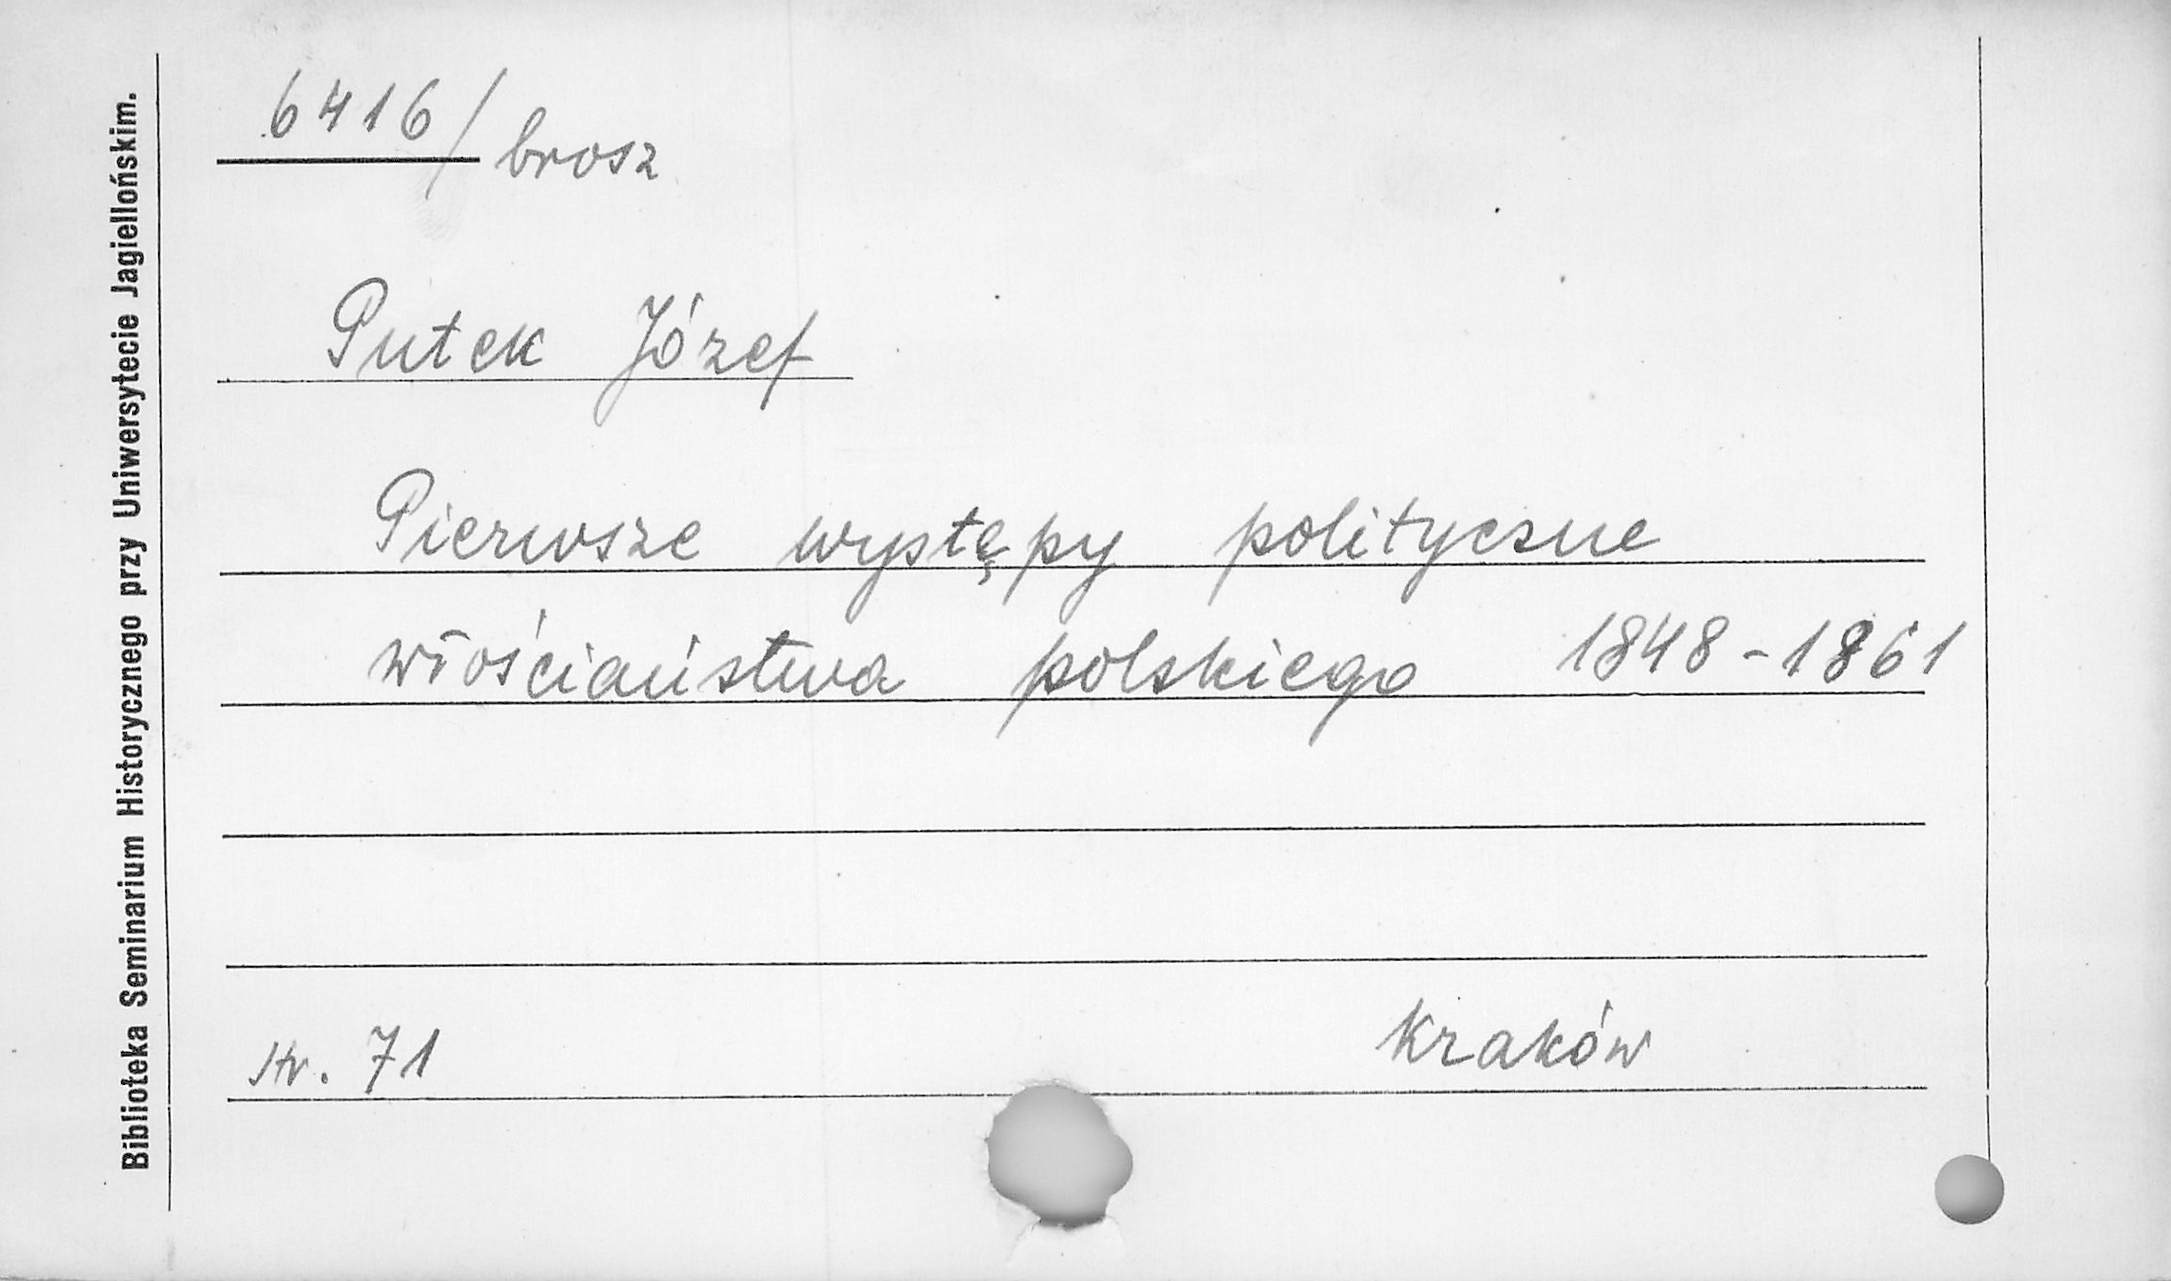 6416/brosz
Putek Józef
Pierwsze występy polityczne
włościaństwa polskiego 1848-1861
str. 71 Kraków
Biblioteka Seminarium Historycznego przy Uniwersytecie Jagiellońskim.